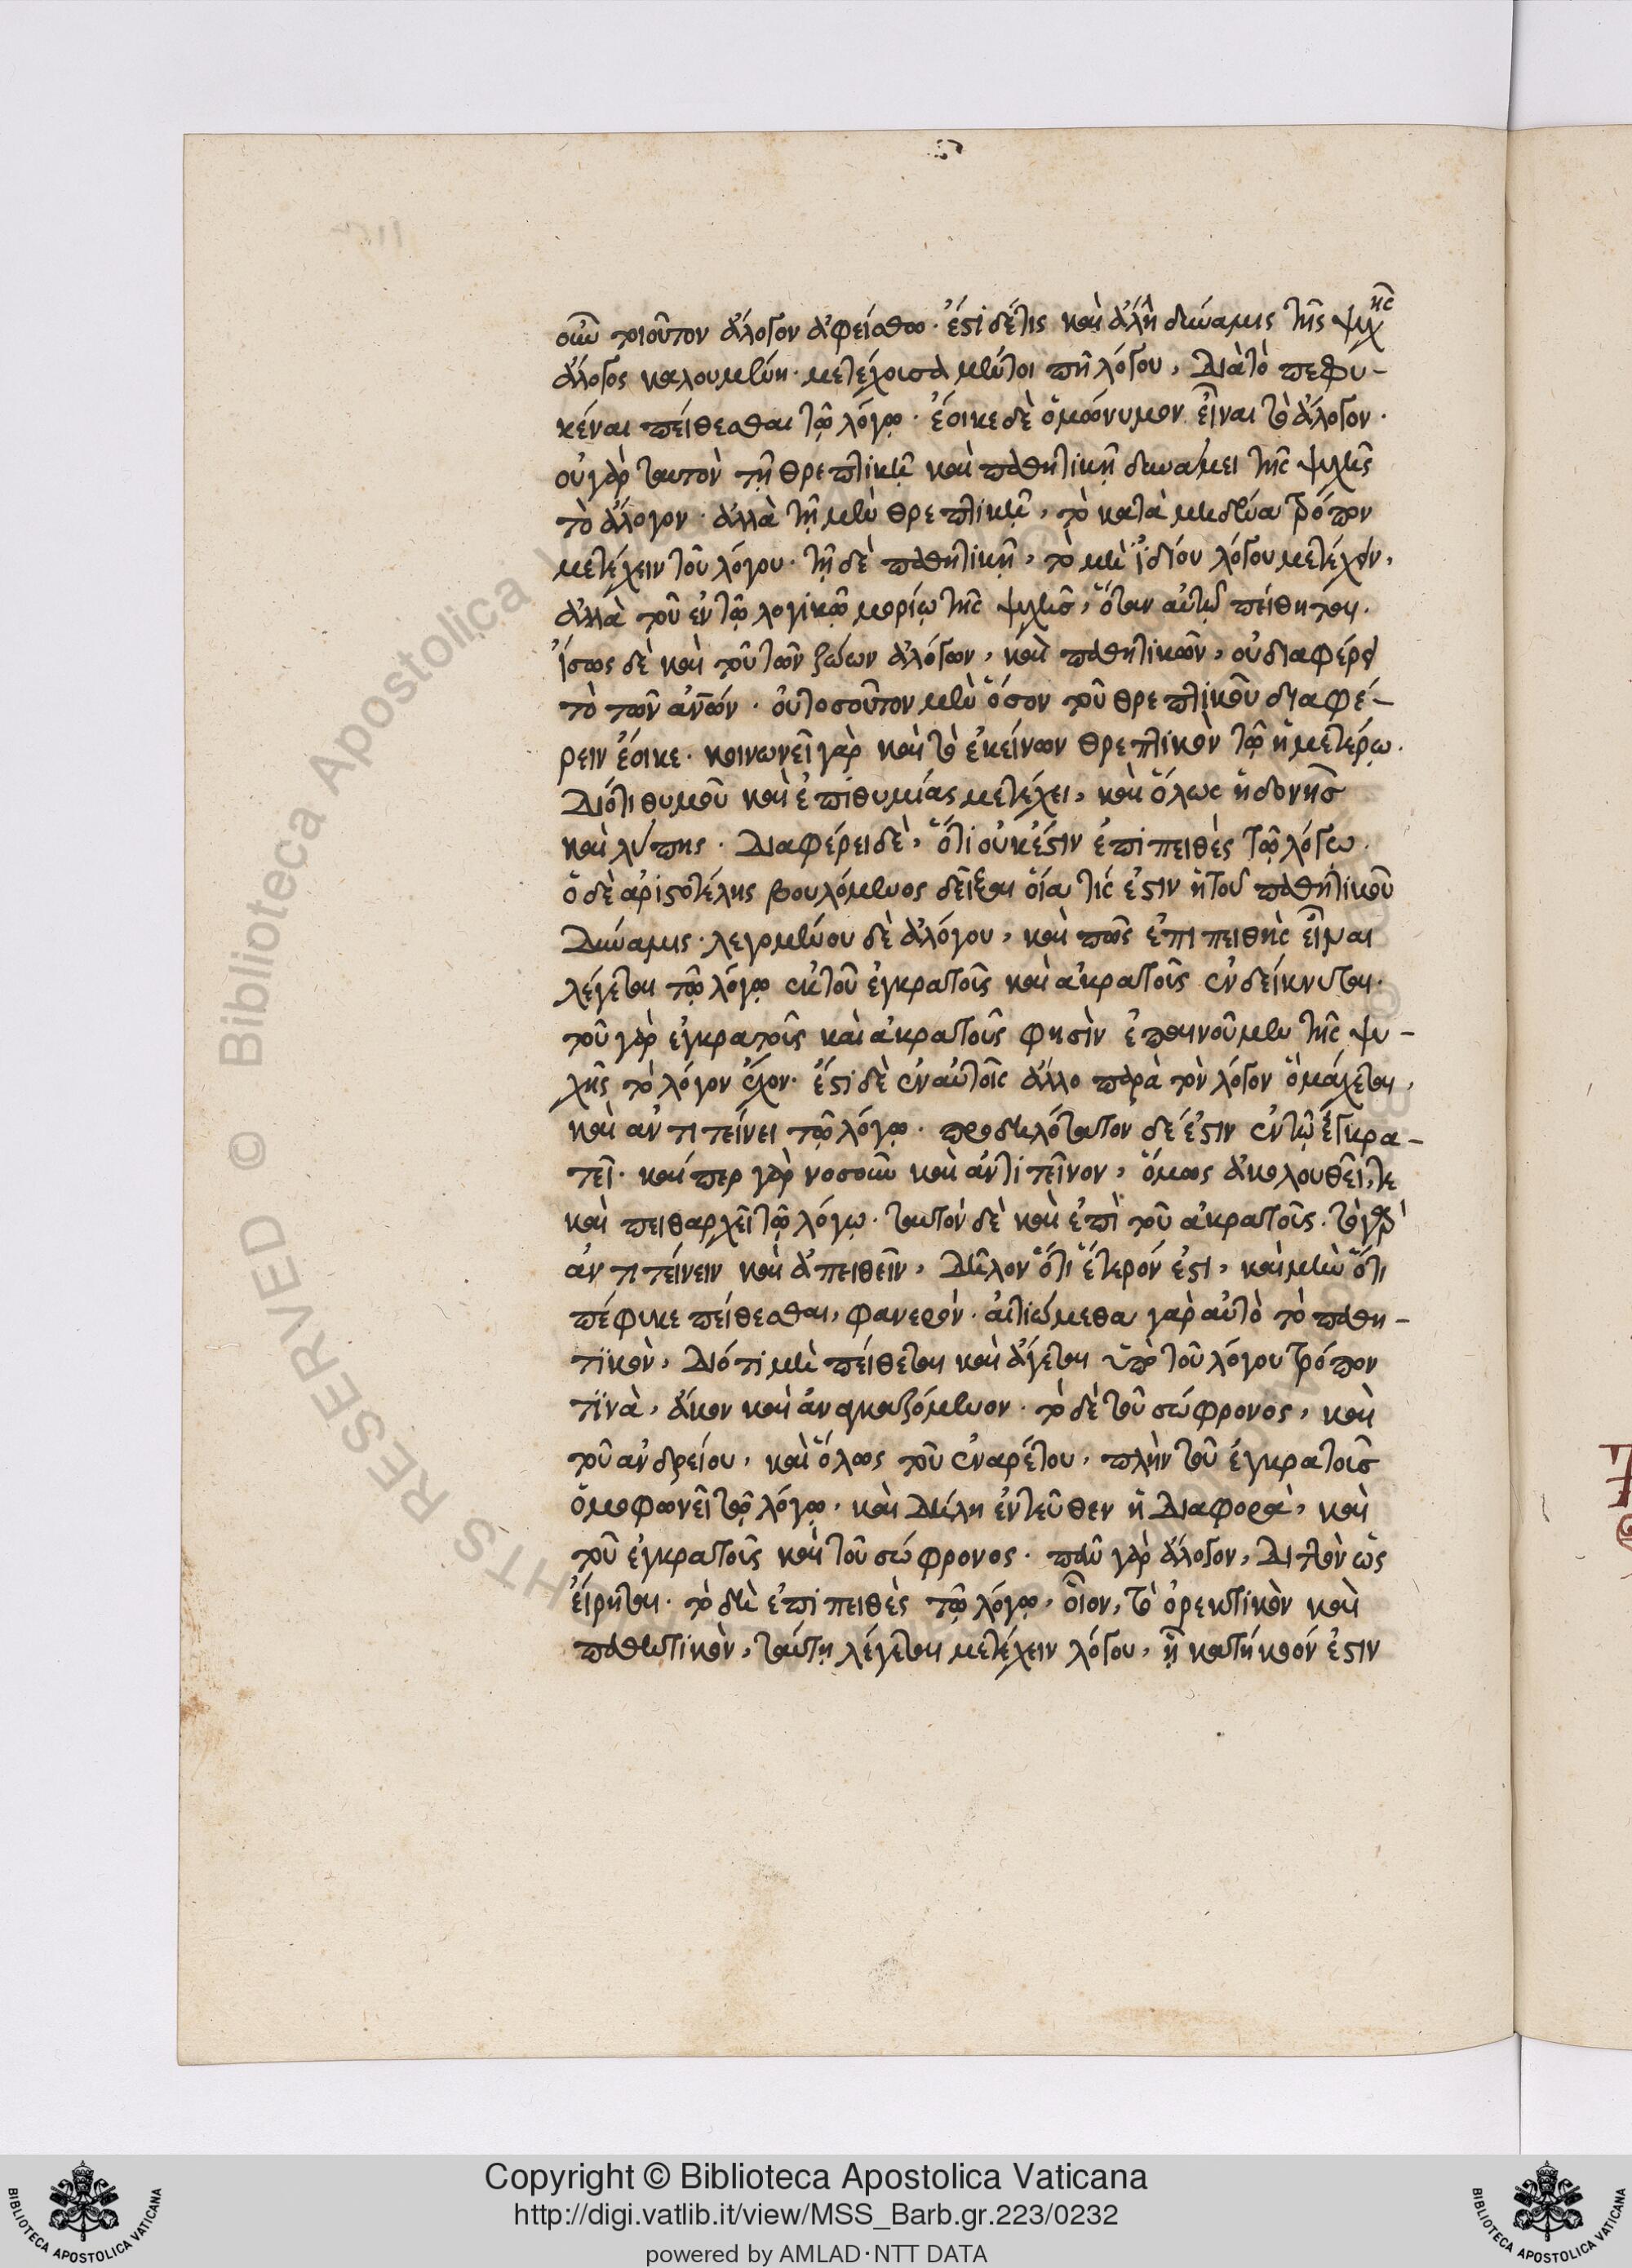 οὖν τοιοῦτον ἄλογον ἀφείσθω· ἔστι δέ τις καὶ ἄλλη δύναμις τῆς ψυχῆς
ἄλογος καλουμένη· μετέχουσα μέντοι πῆ λόγου, διὰ τὸ πεφυ-
κέναι πείθεσθαι τῷ λόγῳ· ἔοικε δὲ ὁμώνυμον εἶναι τὸ ἄλογον·
οὐ γὰρ ταυτὸν τῇ θρεπτικῇ καὶ παθητικῇ δυνάμει τῆς ψυχῆς
τὸ ἄλογον· ἀλλὰ τῇ μὲν θρεπτικῇ, τὸ κατὰ μηδένα τρόπον
μετέχειν τοῦ λόγου· τῇ δὲ παθητικῇ, τὸ μὴ ἰδίου λόγου μετέχον,
ἀλλὰ τοῦ ἐν τῷ λογικῷ μορίῳ τῆς ψυχῆς, ὅταν αὐτῷ πείθηται·
ἴσως δὲ καὶ τοῦ τῶν ζώων ἀλόγων, καὶ παθητικῶν, οὐ διαφέρει
τὸ τῶν ἀνῶν· οὐ τοσοῦτον μὲν ὅσον τοῦ θρεπτικοῦ διαφέ-
ρειν ἔοικε· κοινωνεῖ γὰρ καὶ τὸ ἐκείνων θρεπτικὸν τῷ ἡμετέρῳ·
διότι θυμοῦ καὶ ἐπιθυμίας μετέχει, καὶ ὅλως ἡδονῆς
καὶ λύπης· διαφέρει δὲ, ὅτι οὐκ ἔστιν ἐπιπειθὲς τῷ λόγῳ·
ὁ δὲ ἀριστοτέλης βουλόμενος δεῖξαι οἵα τίς ἐστιν ἡ τοῦ παθητικοῦ
δύναμις· λεγομένου δὲ ἀλόγου, καὶ πῶς ἐπιπειθὴς εἶναι
λέγεται τῷ λόγῳ ἐκ τοῦ ἐγκρατοῦς καὶ ἀκρατοῦς ἐνδείκνυται·
τοῦ γὰρ ἐγκρατοῦς καὶ ἀκρατοῦς φησὶν ἐπαινοῦμεν τῆς ψυ-
χῆς τὸ λόγον ἔχον· ἔστι δὲ ἐν αὐτοῖς ἄλλο παρὰ τὸν λόγον ὃ μάχεται,
καὶ ἀντιτείνει τῷ λόγῳ· προδηλότατον δέ ἐστιν ἐν τῷ ἐγκρα-
τεῖ· καίπερ γὰρ νοσοῦν καὶ ἀντιτεῖνον, ὅμως ἀκολουθεῖ, τε
καὶ πειθαρχεῖ τῷ λόγῳ· ταυτόν δὲ καὶ ἐπὶ τοῦ ἀκρατοῦς· τὸ γὰρ
ἀντιτείνειν καὶ ἀπειθεῖν, δῆλον ὅτι ἕτερόν ἐστι, καὶ μὴν ὅτι
πέφυκε πείθεσθαι, φανερὸν· αἰτιώμεθα γὰρ αὐτὸ τὸ παθη-
τικὸν, διότι μὴ πείθεται καὶ ἄγεται ὑπὸ τοῦ λόγου τρόπον
τινὰ, ἄκον καὶ ἀναγκαζόμενον· τὸ δὲ τοῦ σώφρονος, καὶ
τοῦ ἀνδρείου, καὶ ὅλως τοῦ ἐναρέτου, πλὴν τοῦ ἐγκρατοῦς
ὁμοφωνεῖ τῷ λόγῳ, καὶ δήλη ἐντεῦθεν ἡ διαφορὰ, καὶ
τοῦ ἐγκρατοῦς καὶ τοῦ σώφρονος· πᾶν γὰρ ἄλογον, διττὸν ὡς
εἴρηται· τὸ δὴ ἐπιπειθὲς τῷ λόγῳ, οἷον, τὸ ὀρεκτικὸν καὶ
παθητικὸν, ταύτῃ λέγεται μετέχειν λόγου, ᾗ κατήκοόν ἐστιν
Copyright © Biblioteca Apostolica Vaticana
http://digi.vatlib.it/view/MSS_Barb.gr.223/0232
powered by AMLAD·NTT DATA